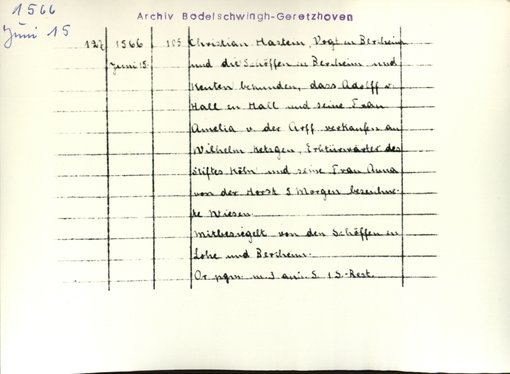 1566
Juni 15
Archiv Bodelschwingh-Geretzhoven
1566 Christian Hastein, Vogt in Bercheim
Juni 15. und die Schöffen in Bercheim und
Kenten bekunden, dass Adolff v.
Hall in Hall und seine Frau
Amelia v. der Arff verkaufen an
Wilhelm Ketzgen, Erbtürwärter des
Stiftes Köln und seine Frau Anna
von der Horst 5 Morgen bezeichne-
te Wiesen.
Mitbesiegelt von den Schöffen in
Lohe und Bercheim.
Or. pgm. m. 3 anh. S. 1 S.-Rest.